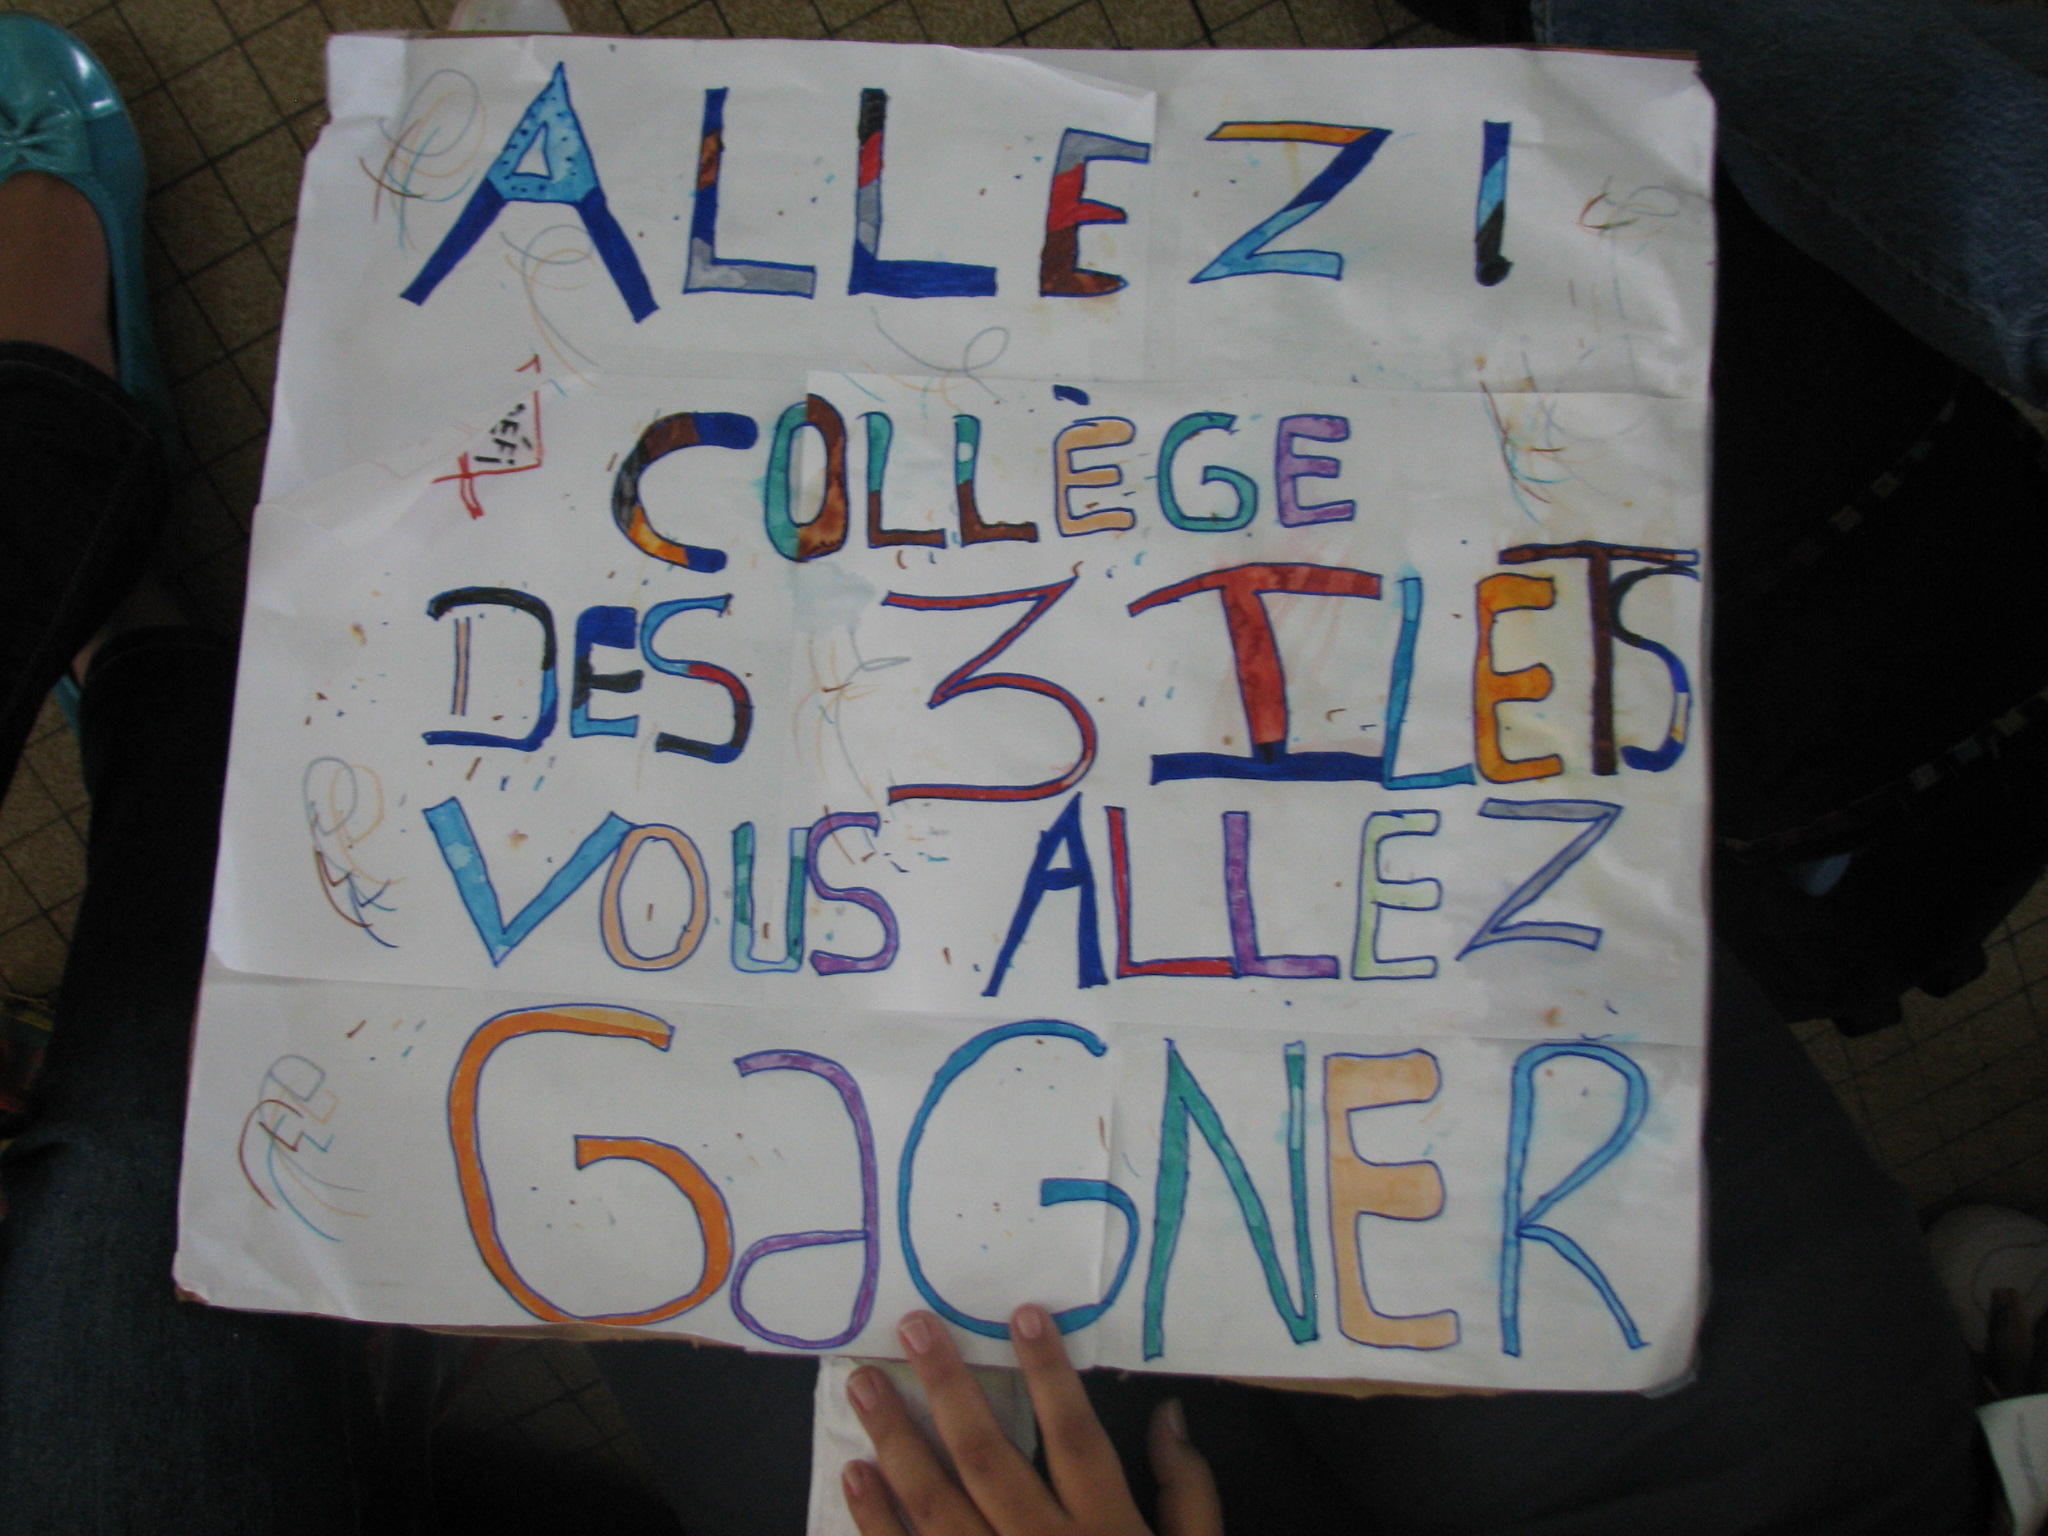 ALLEZ!
DÉFI
COLLÈGE
DES 3 ILETS
VOUS ALLEZ
GaGNER